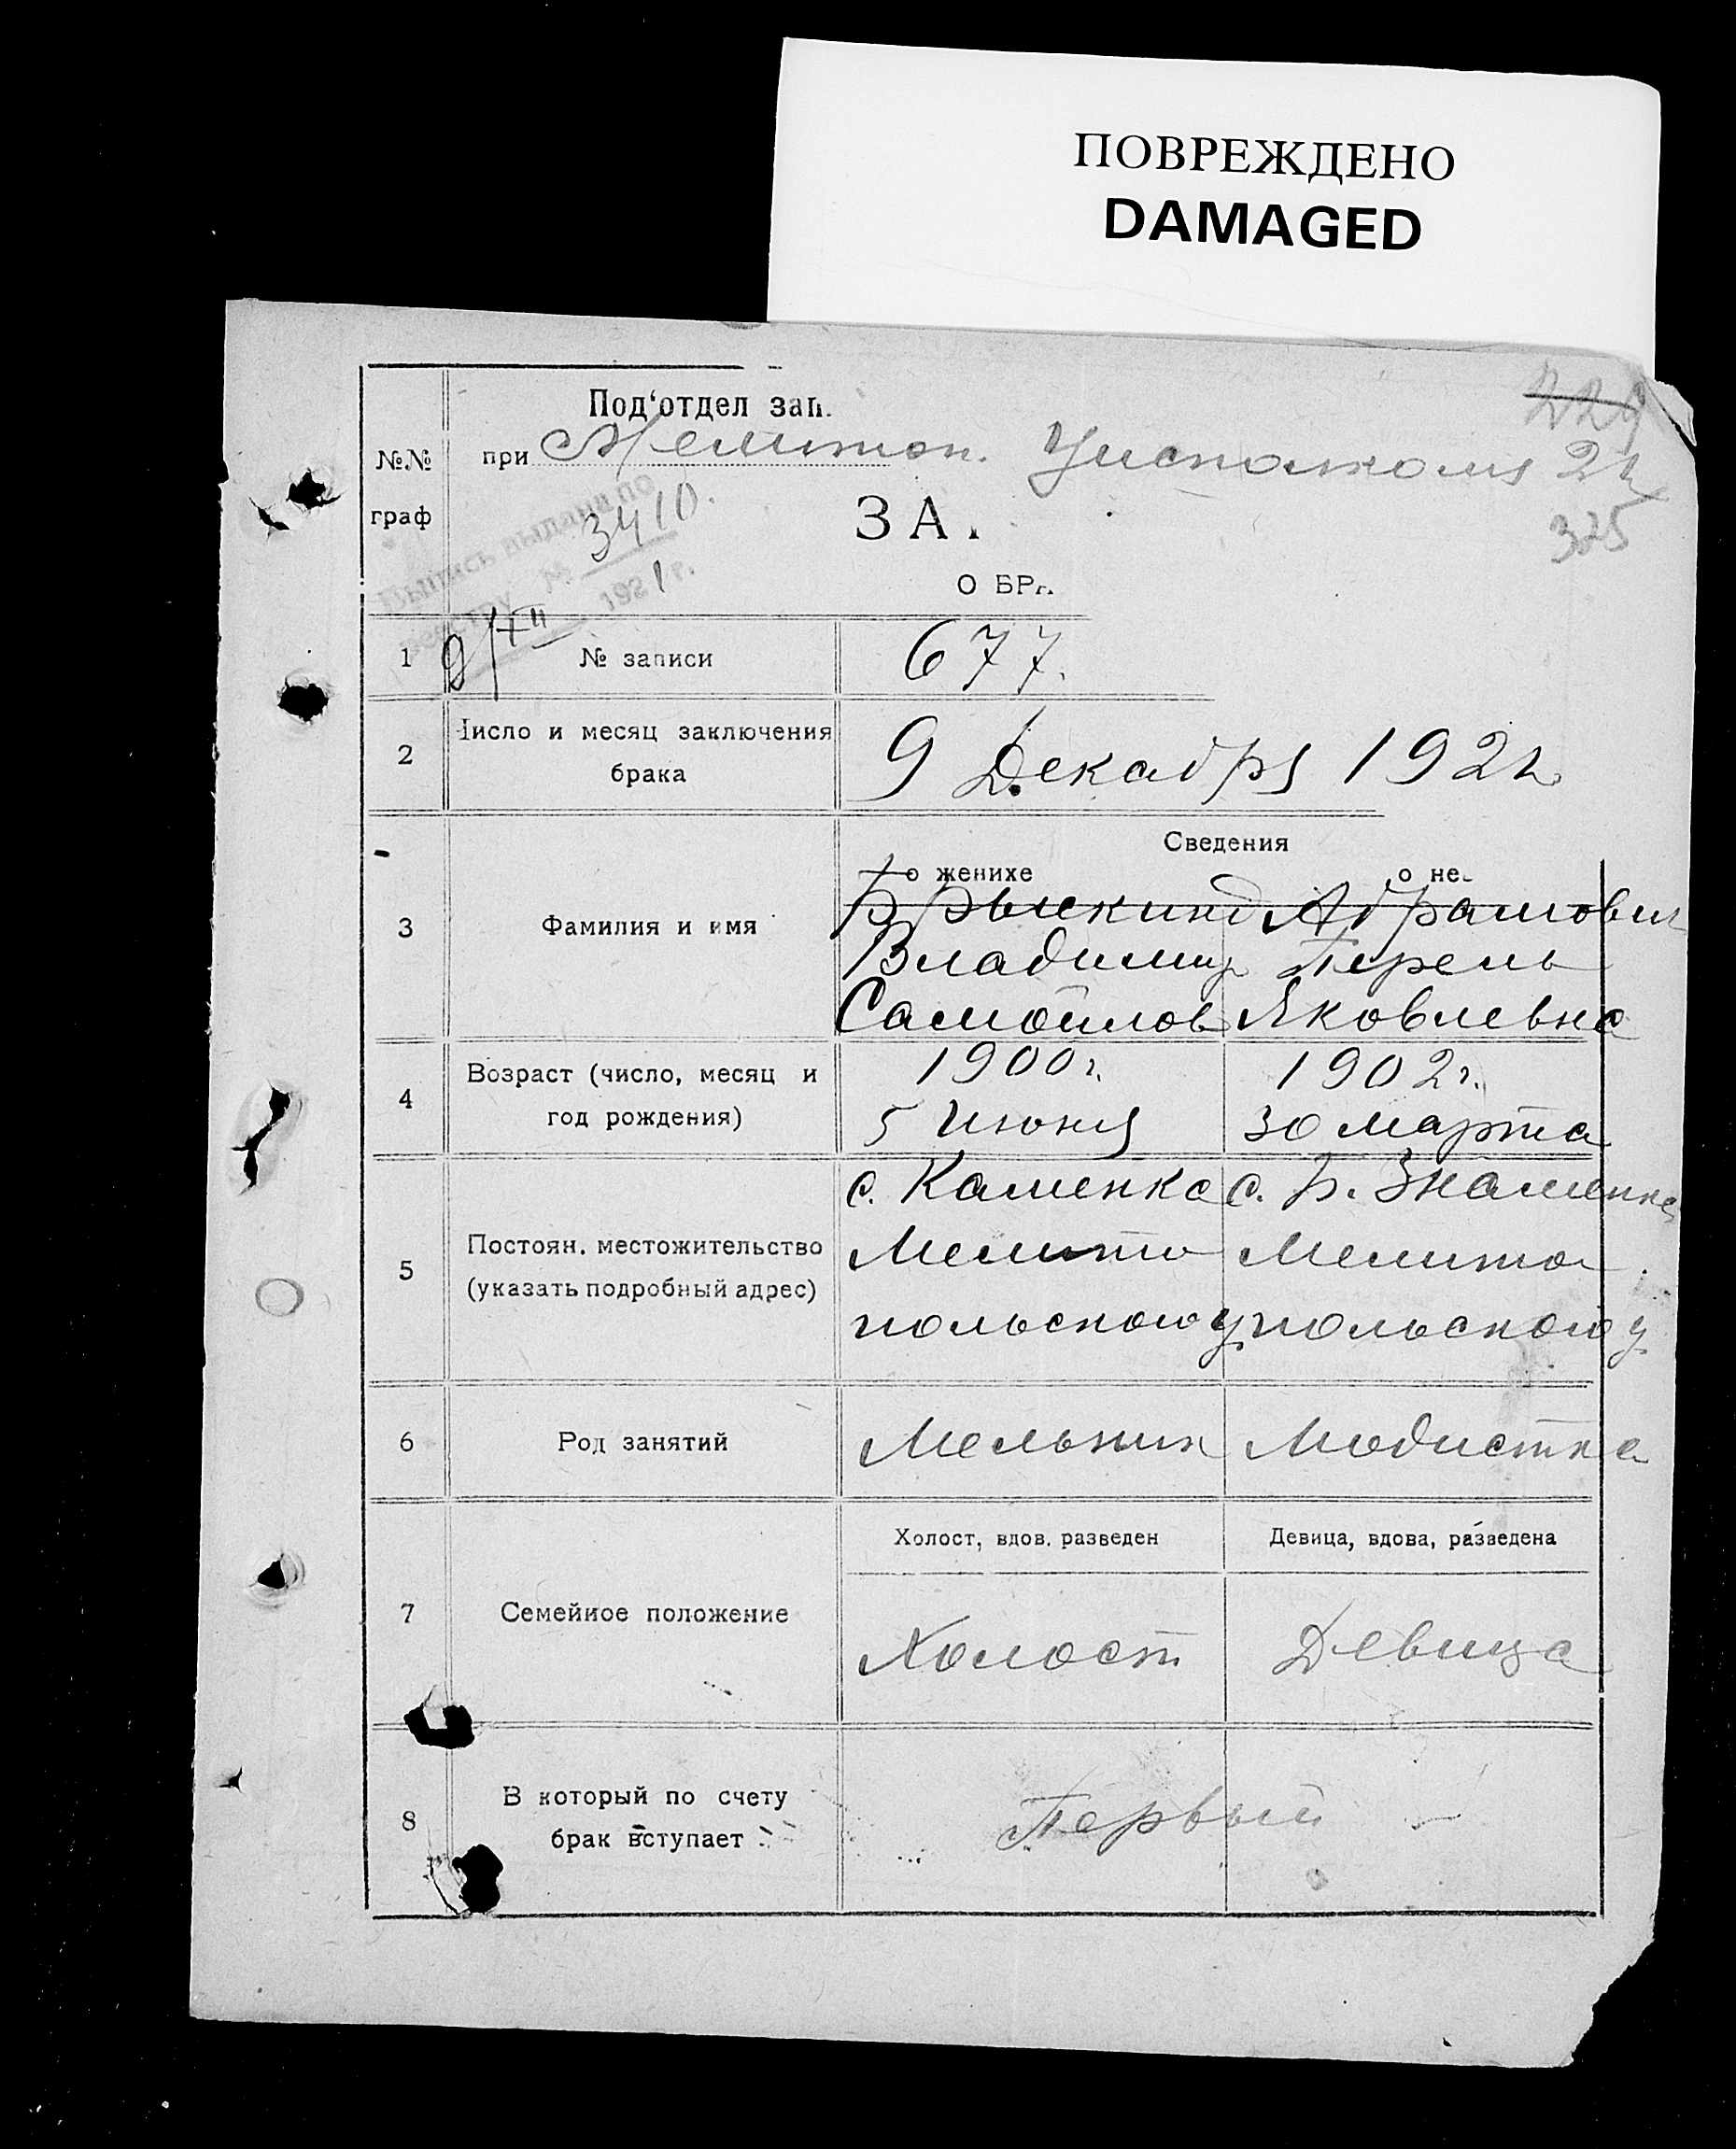 ПОВРЕЖДЕНО
DAMAGED
229
Под'отдел зап.
№№ граф
при Мелитоп. Уисполкома
325
Выпись выдана по
реестру № 3410.
1921 г.
9/XII
ЗА.
О БРА
1 № записи 677.
2 Число и месяц заключения брака 9 Декабря 1921
Сведения
о женихе о не
3 Фамилия и имя Брыскинд Абрамович
Владимир Перель
Самойлов Яковлевна
4 Возраст (число, месяц и год рождения) 1900 г. 1902 г.
5 Июня 30 марта
5 Постоян. местожительство (указать подробный адрес) с. Каменка с. Б. Знаменка
Мелито Мелито
польского у польского у
6 Род занятий Мельник Модистка
Холост, вдов. разведен Девица, вдова, разведена
7 Семейное положение Холост Девица
8 В который по счету брак вступает Первый –